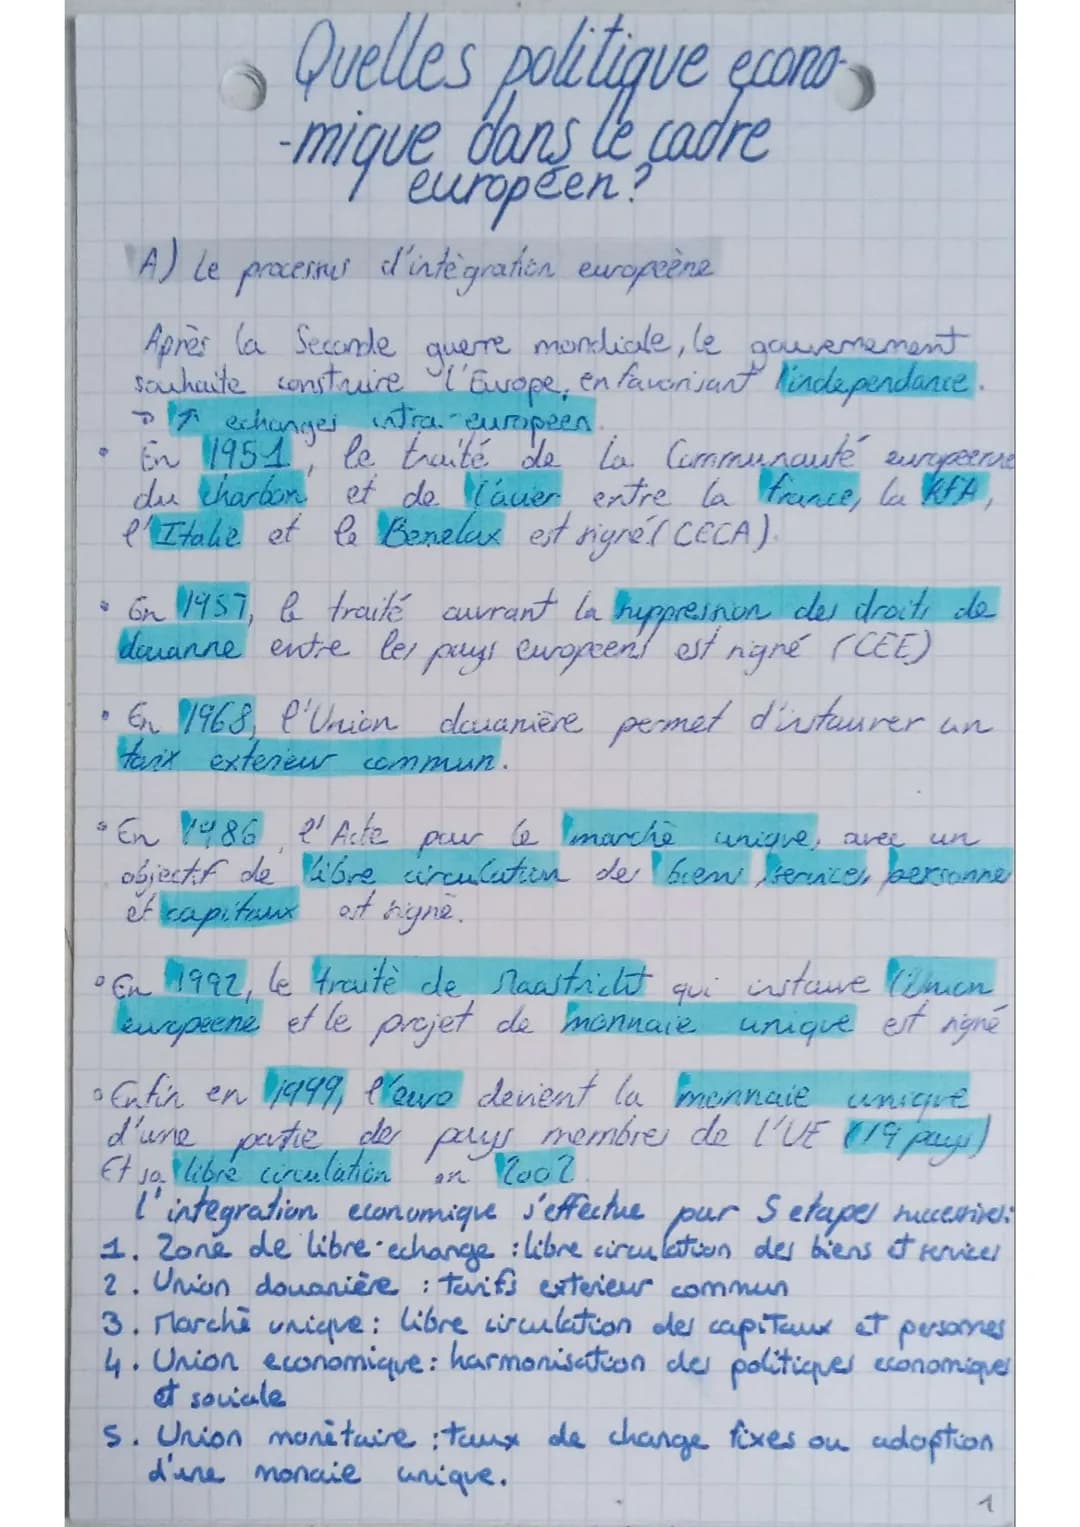 Quelles politique econo-
-mique dans le cadre
européen?
A) Le processus d'intègration europeène
Après la Seconde guerre mondiale, le gouvernement
souhaite construire l'Europe, en favorisant l'independance.
→ ↑ echanges intra-europeen.
• En 1951, le traité de la Communauté europeenne
du charbon et de l'acier entre la france, la RFA,
l'Italie et le Benelux est signé (CECA).
• En 1957, le traité ouvrant la suppression des droits de
douanne entre les pays europeens est signé (CEE)
• En 1968, l'Union douanière permet d'instaurer un
tarix exterieur commun.
• En 1986, l'Acte pour le marché unique, avec un
objectif de libre circulation des biens, services, personnes
et capitaux est signé.
• En 1992, le traité de Maastricht qui instaure l'Union
europeene et le projet de monnaie unique est signé
• Enfin en 1999, l'euro devient la monnaie unique
d'une partie des pays membres de l'UE (19 pays)
Et sa libre circulation en 2002.
l'intégration economique s'effectue par 5 etapes successives:
1. Zone de libre-echange : libre circulation des biens et services
2. Union douanière : tarifs exterieur commun
3. Marché unique : libre circulation des capitaux et personnes
4. Union economique : harmonisation des politiques economiques
et sociale
5. Union monètaire : taux de change fixes ou adoption
d'une monaie unique.
1